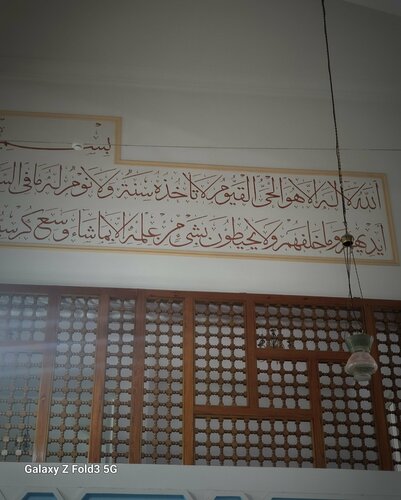 بسم
الله لا إله إلا هو الحي القيوم لا تأخذه سنة ولا نوم له ما في
أيديهم وما خلفهم ولا يحيطون بشيء من علمه إلا بما شاء وسع
Galaxy Z Fold3 5G